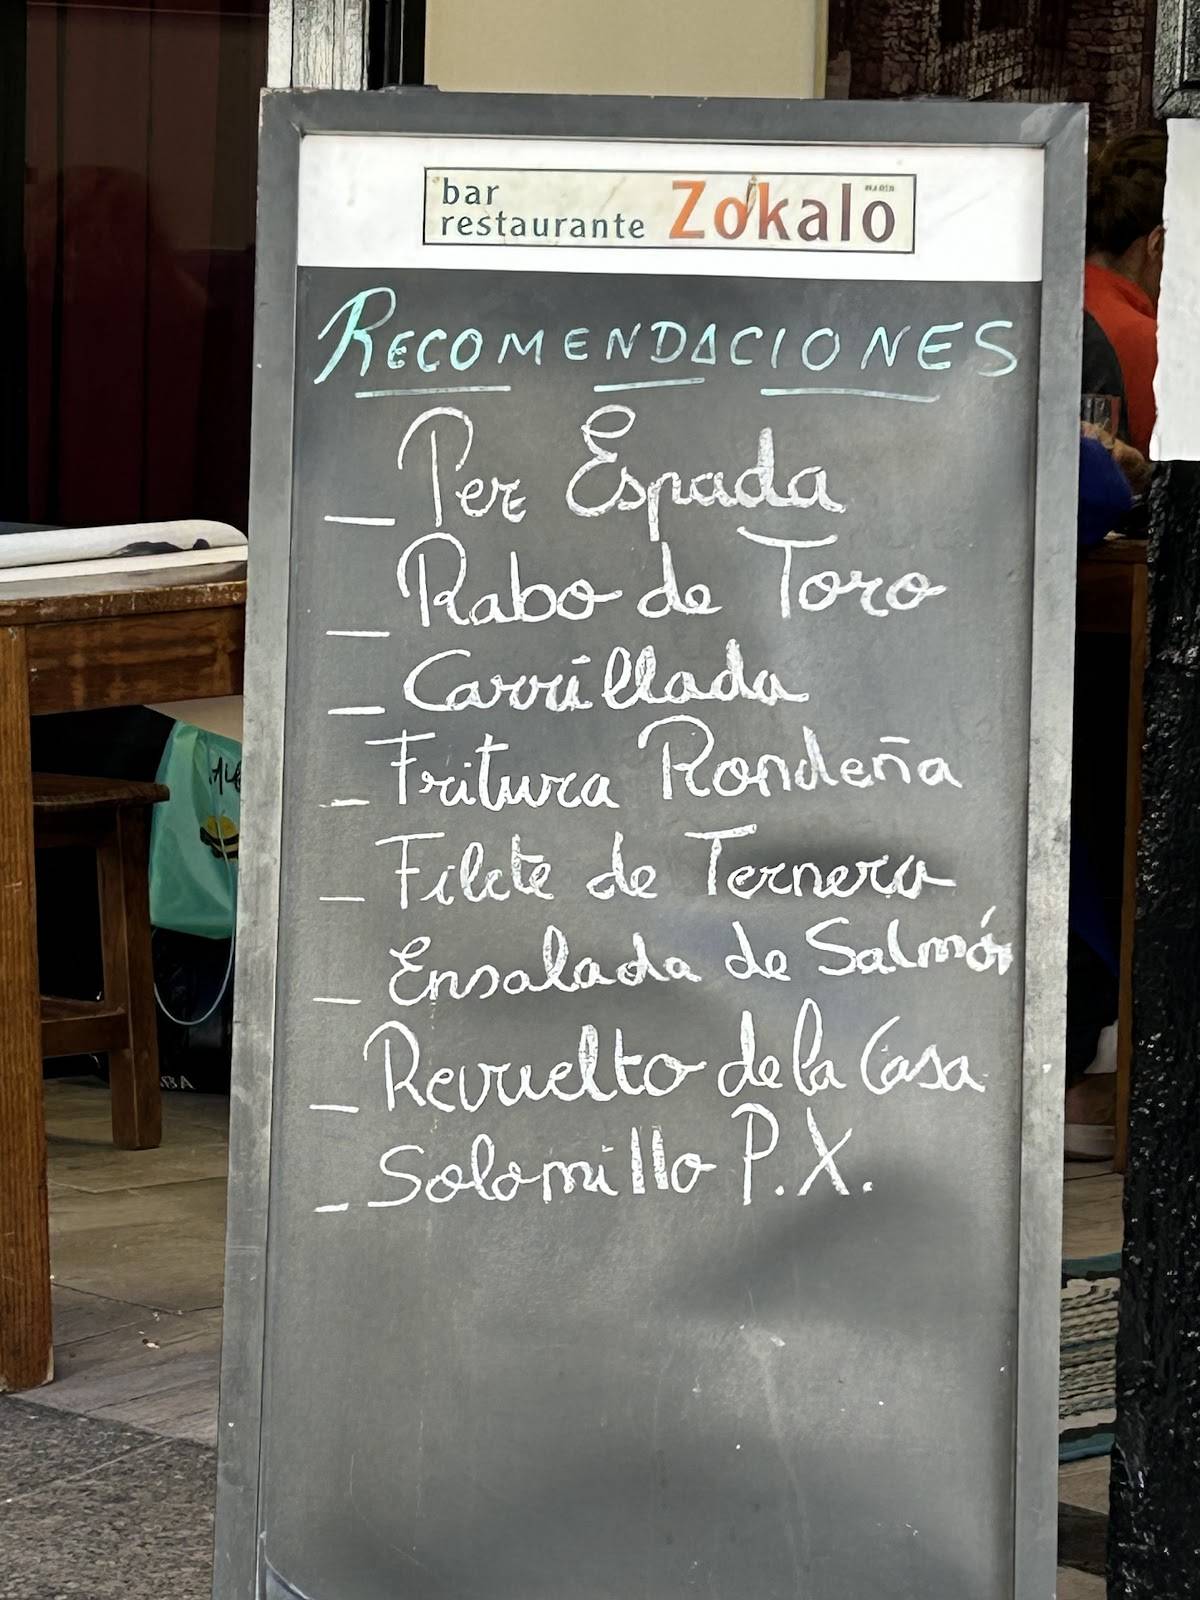 bar
restaurante Zokalo
RECOMENDACIONES
_ Pez Espada
_ Rabo de Toro
_ Carrillada
_ Fritura Rondeña
_ Filete de Ternera
_ Ensalada de Salmón
_ Revuelto de la Casa
_ Solomillo P.X.